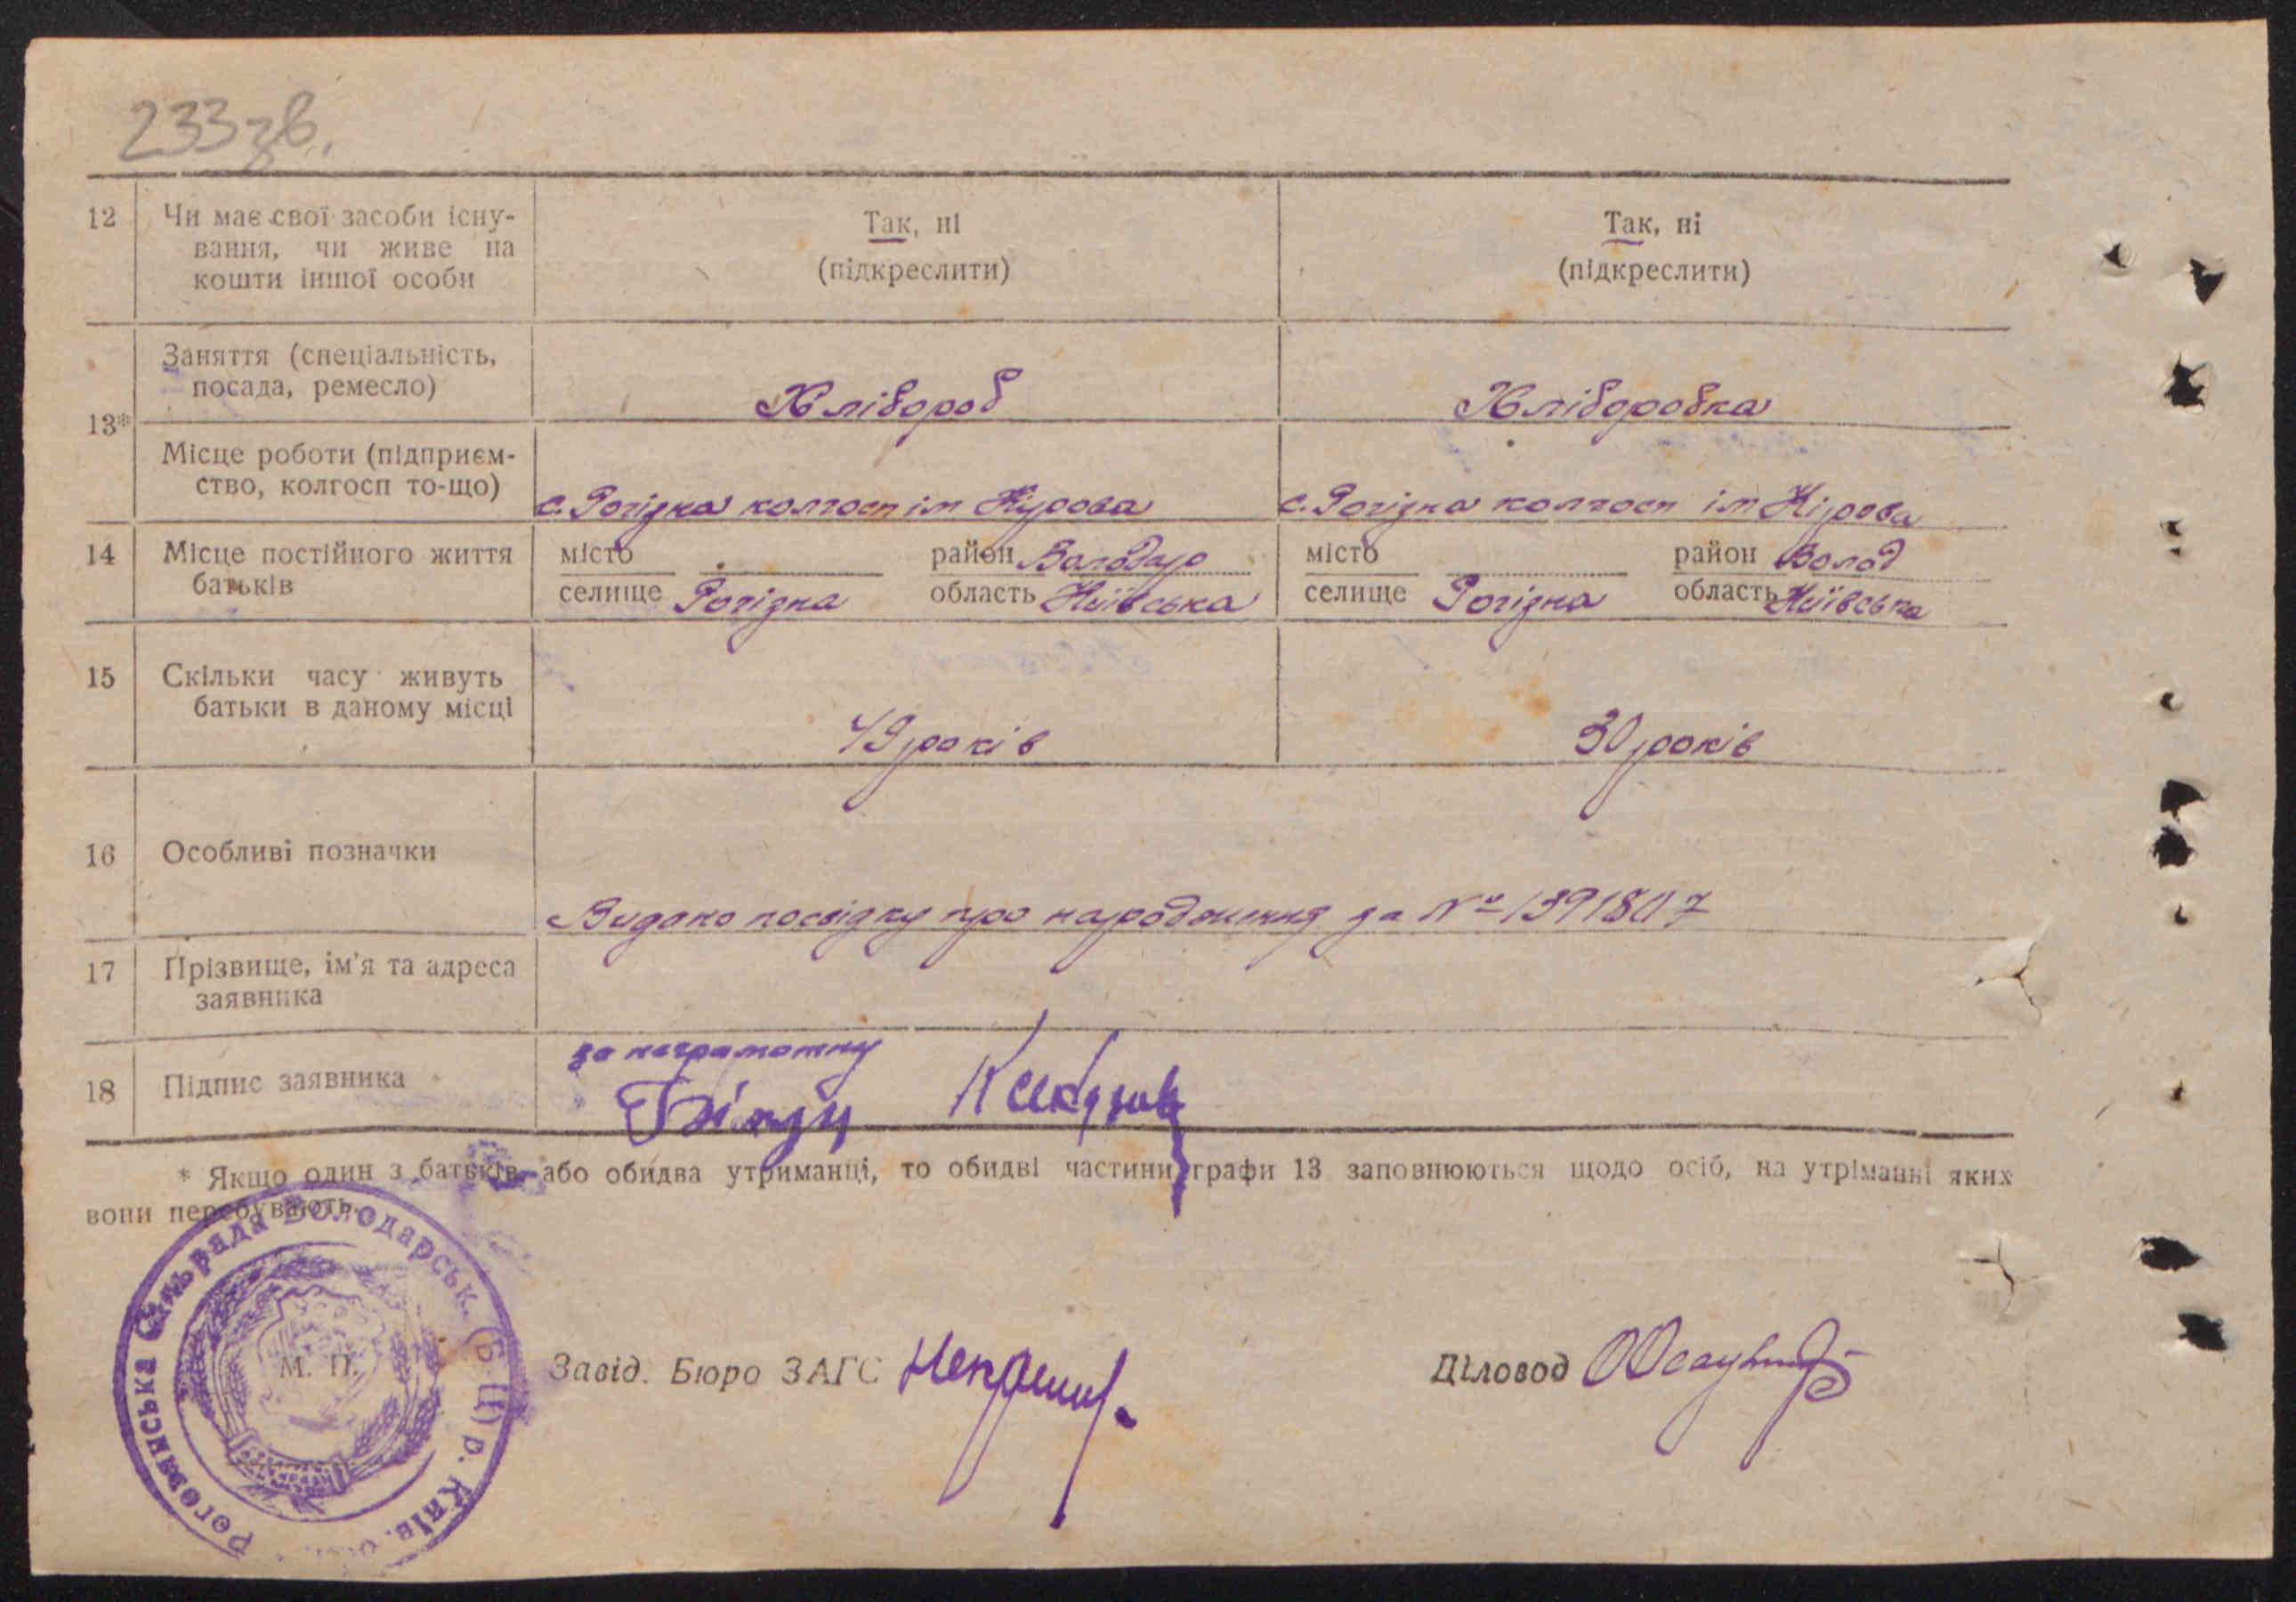 233 зв.
12 Чи має свої засоби існу- Так, ні Так, ні
вання, чи живе на
кошти іншої особи (підкреслити) (підкреслити)
Заняття (спеціальність,
посада, ремесло) Хлібороб Хлібороbка
13*
Місце роботи (підприєм-
ство, колгосп то-що) с. Рогізна колгосп ім Кірова с. Рогізна колгосп ім Кірова
14 Місце постійного життя місто район Володар місто район Волод
батьків селище Рогізна область Київська селище Рогізна область Київська
15 Скільки часу живуть
батьки в даному місці 49 років 30 років
16 Особливі позначки
Видано посвідку про народження за № 1391807
17 Прізвище, ім'я та адреса
заявника
за неграмотну
18 Підпис заявника
* Якщо один з батьків або обидва утриманці, то обидві частини графи 13 заповнюються щодо осіб, на утріманні яких
вони перебувають.
Рогозянська Сільрада Володарськ. (Б-Ц) р. Київ. о
М. П.
Завід. Бюро ЗАГС Діловод